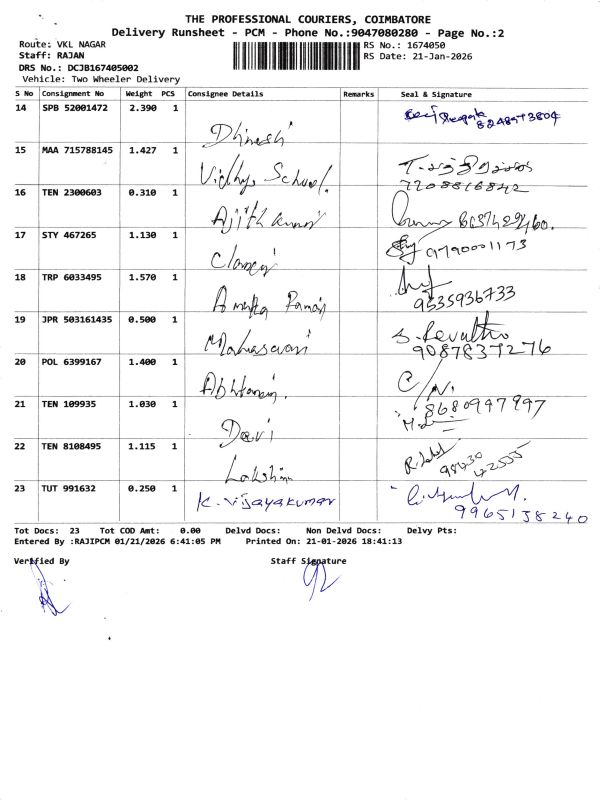 THE PROFESSIONAL COURIERS, COIMBATORE
Delivery Runsheet - PCM - Phone No.:9047080280 - Page No.:2
Route: VKL NAGAR
Staff: RAJAN
DRS No.: DCJB167405002
Vehicle: Two Wheeler Delivery
RS No.: 1674050
RS Date: 21-Jan-2026
S No Consignment No Weight PCS Consignee Details Remarks Seal & Signature
14 SPB 52001472 2.390 1
Dhinesh
15 MAA 715788145 1.427 1
Vidhya School.
7208816842
16 TEN 2300603 0.310 1
Ajith kumar
17 STY 467265 1.130 1
9790001173
18 TRP 6033495 1.570 1
9535936733
19 JPR 503161435 0.500 1
S. Revathi
9087837276
20 POL 6399167 1.400 1
C/N.
21 TEN 109935 1.030 1
8680997997
Devi
22 TEN 8108495 1.115 1
98430
42555
Lakshmi
23 TUT 991632 0.250 1
K. Vijayakumar
9965138240
Tot Docs: 23 Tot COD Amt: 0.00 Delvd Docs: Non Delvd Docs: Delvy Pts:
Entered By :RAJIPCM 01/21/2026 6:41:05 PM Printed On: 21-01-2026 18:41:13
Verified By Staff Signature